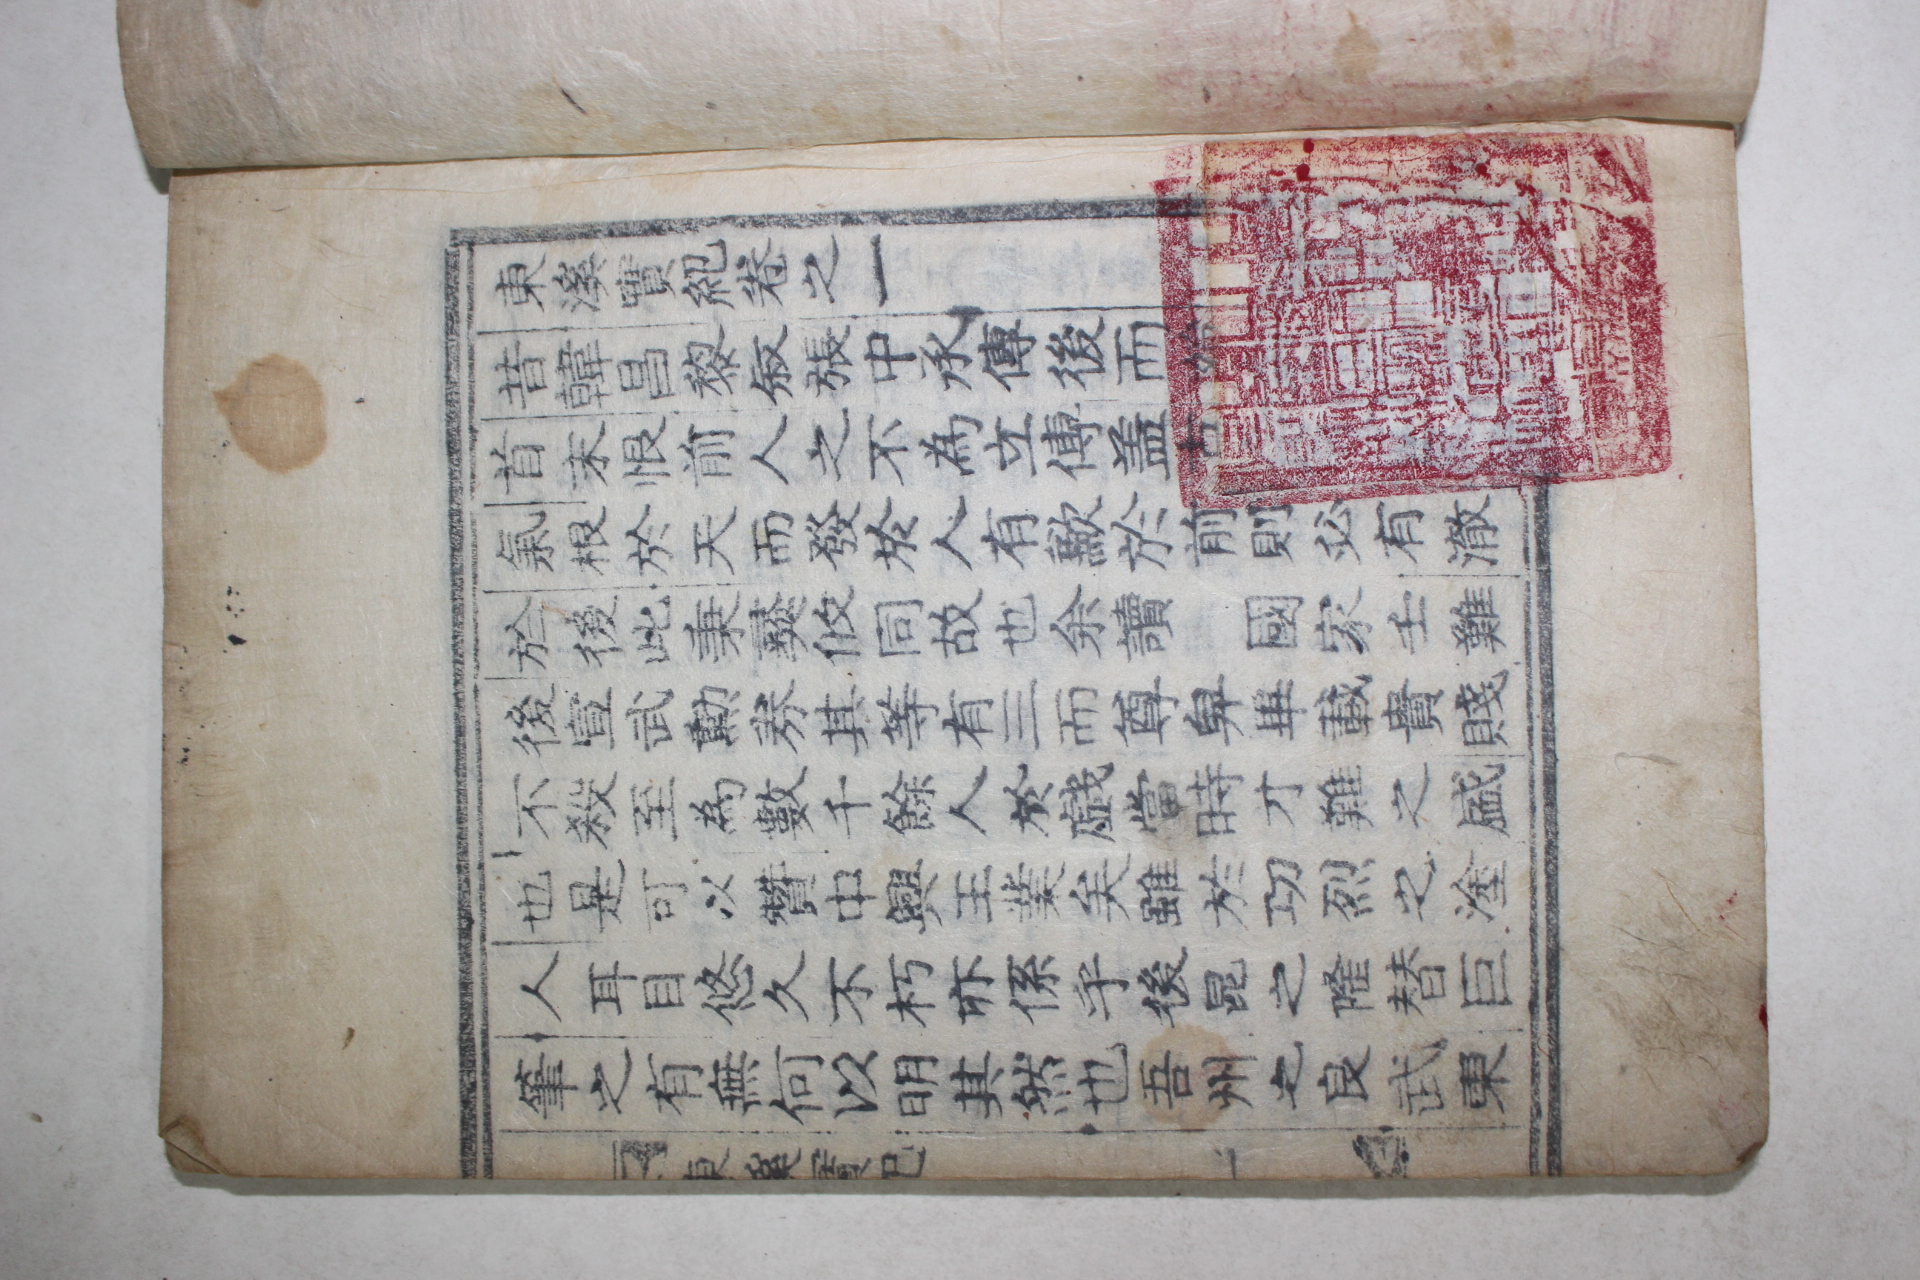 東溪實紀卷之一
昔韓昌黎敍張中承傳後而始
首末恨前人之不為立傳盖古
氣根於天而發於人有歉於前則必有激
於後此秉彛攸同故也余讀 國家壬難
後宣武勳券其等有三而尊卑畢載貴賤
不殺至為數千餘人於戲當時才難之盛
也是可以贊中興王業矣雖於功烈之塗
人耳目悠久不朽亦係乎後昆之隆替巨
筆之有無何以明其然也吾州之良武東
東溪實紀
一